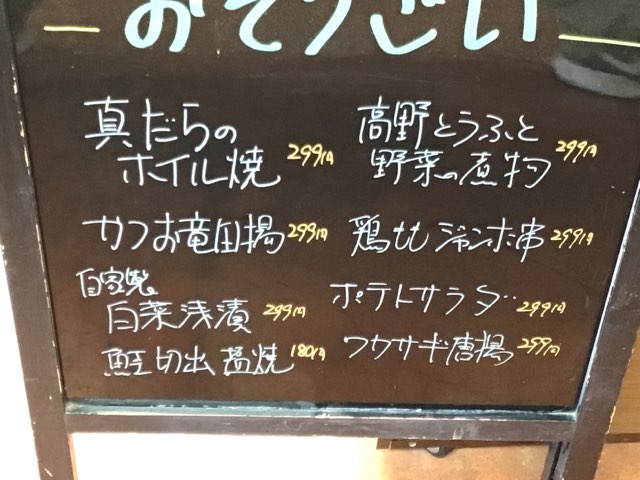 おそうざい
真だらの
ホイル焼 299円
カツお竜田揚 299円
自家製
白菜浅漬 299円
鮭切出塩焼 180円
高野とうふと
野菜の煮物 299円
鶏もも ジャンボ串 299円
ポテトサラダ 299円
ワカサギ唐揚 299円